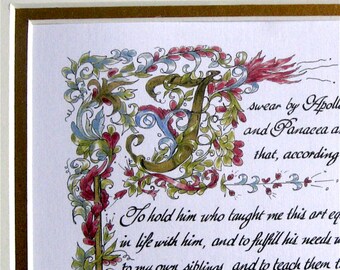 I
swear by Apollo
and Panacea a
that, according
To hold him who taught me this art eq
in life with him, and to fulfill his needs w
to my own siblings, and to teach them t